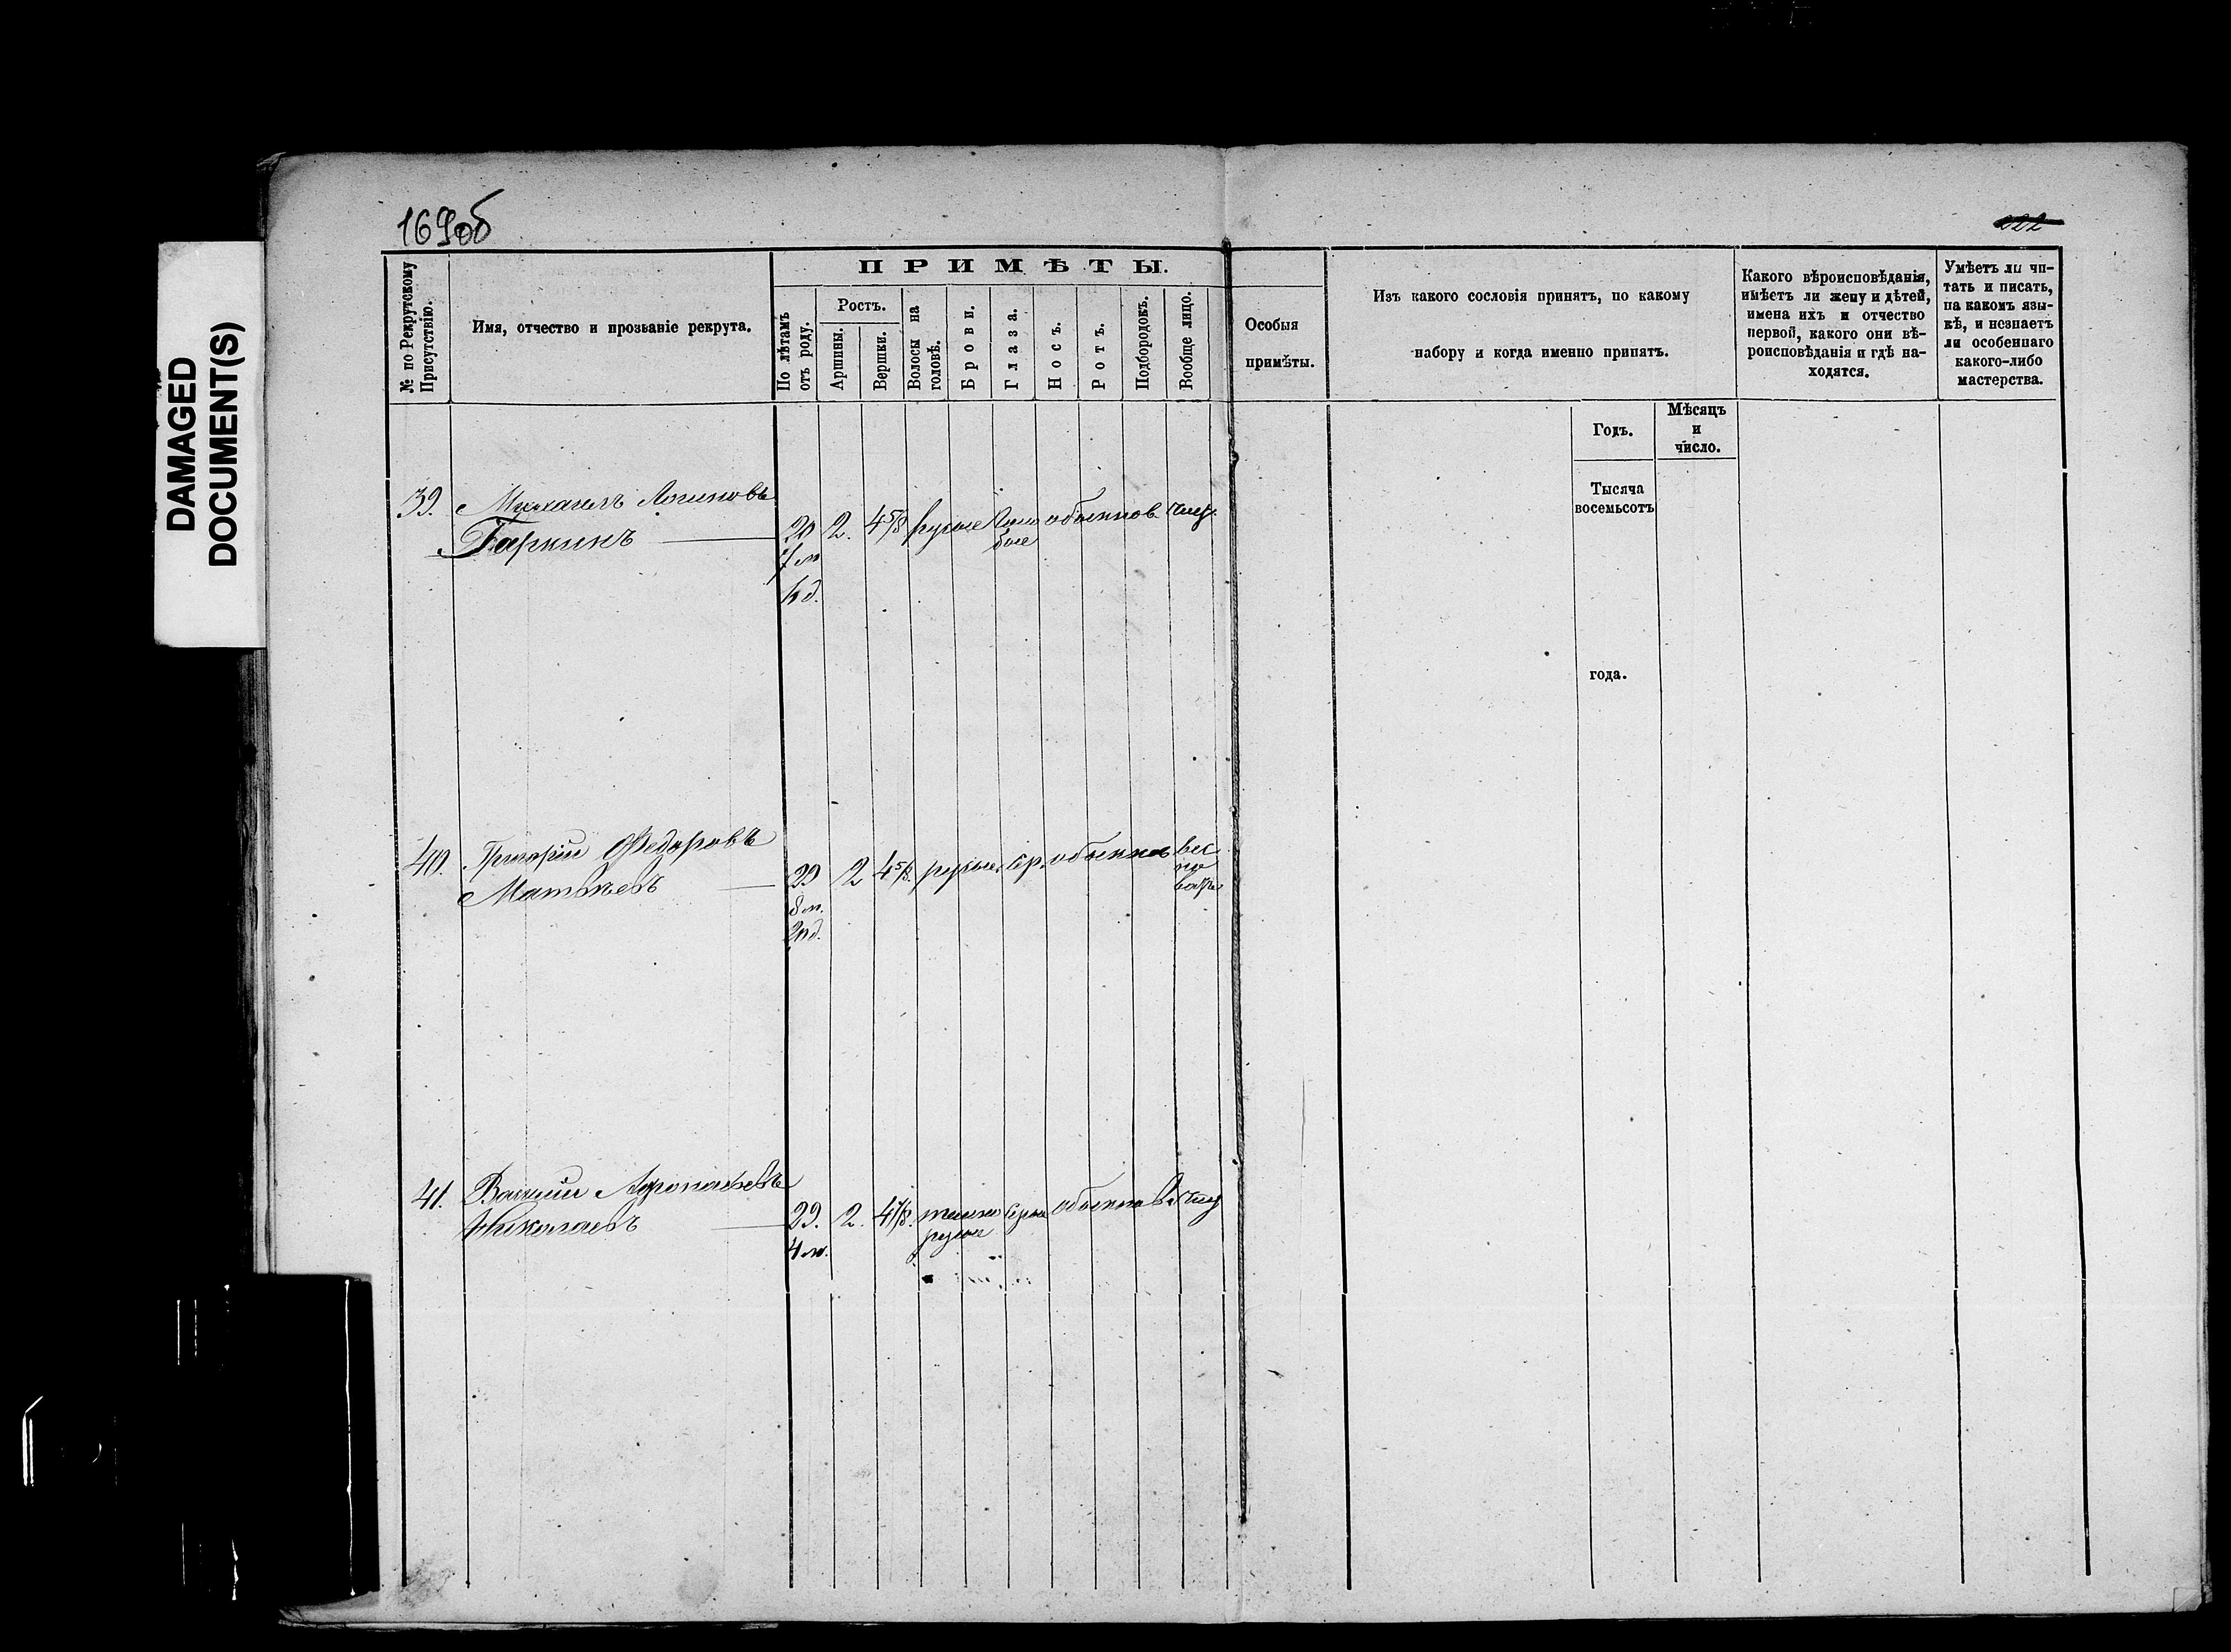 DAMAGED
DOCUMENT(S)
169об
222
№ по Рекрутскому
Присутствію.
Имя, отчество и прозваніе рекрута.
ПРИМѢТЫ.
По лѣтамъ
отъ роду.
Ростъ.
Аршины.
Вершки.
Волосы на
головѣ.
Брови.
Глаза.
Носъ.
Ротъ.
Подбородокъ.
Вообще лицо.
Особыя
примѣты.
Изъ какого сословія принятъ, по какому
набору и когда именно принятъ.
Какого вѣроисповѣданія,
имѣетъ ли жену и дѣтей,
имена ихъ и отчество
первой, какого они вѣ-
роисповѣданія и гдѣ на-
ходятся.
Умѣетъ ли чи-
тать и писать,
на какомъ язы-
кѣ, и незнаетъ
ли особеннаго
какого-либо
мастерства.
Годъ.
Мѣсяцъ
и
число.
Тысяча
восемьсотъ
года.
39. Михаилъ Логиновъ
Гаркинъ 20 2. 4 5/8 русые Голу обыкнов. чист.
7 м бые
40. Григорій Ѳедоровъ
Матвѣевъ 29 2 4 5/8. русые. сер. обыкнов вес
8 м. но
20 д. ват
41. Василій
Николаевъ 29. 2. 4 7/8. темно серые обыкнов чист
4 м. русые